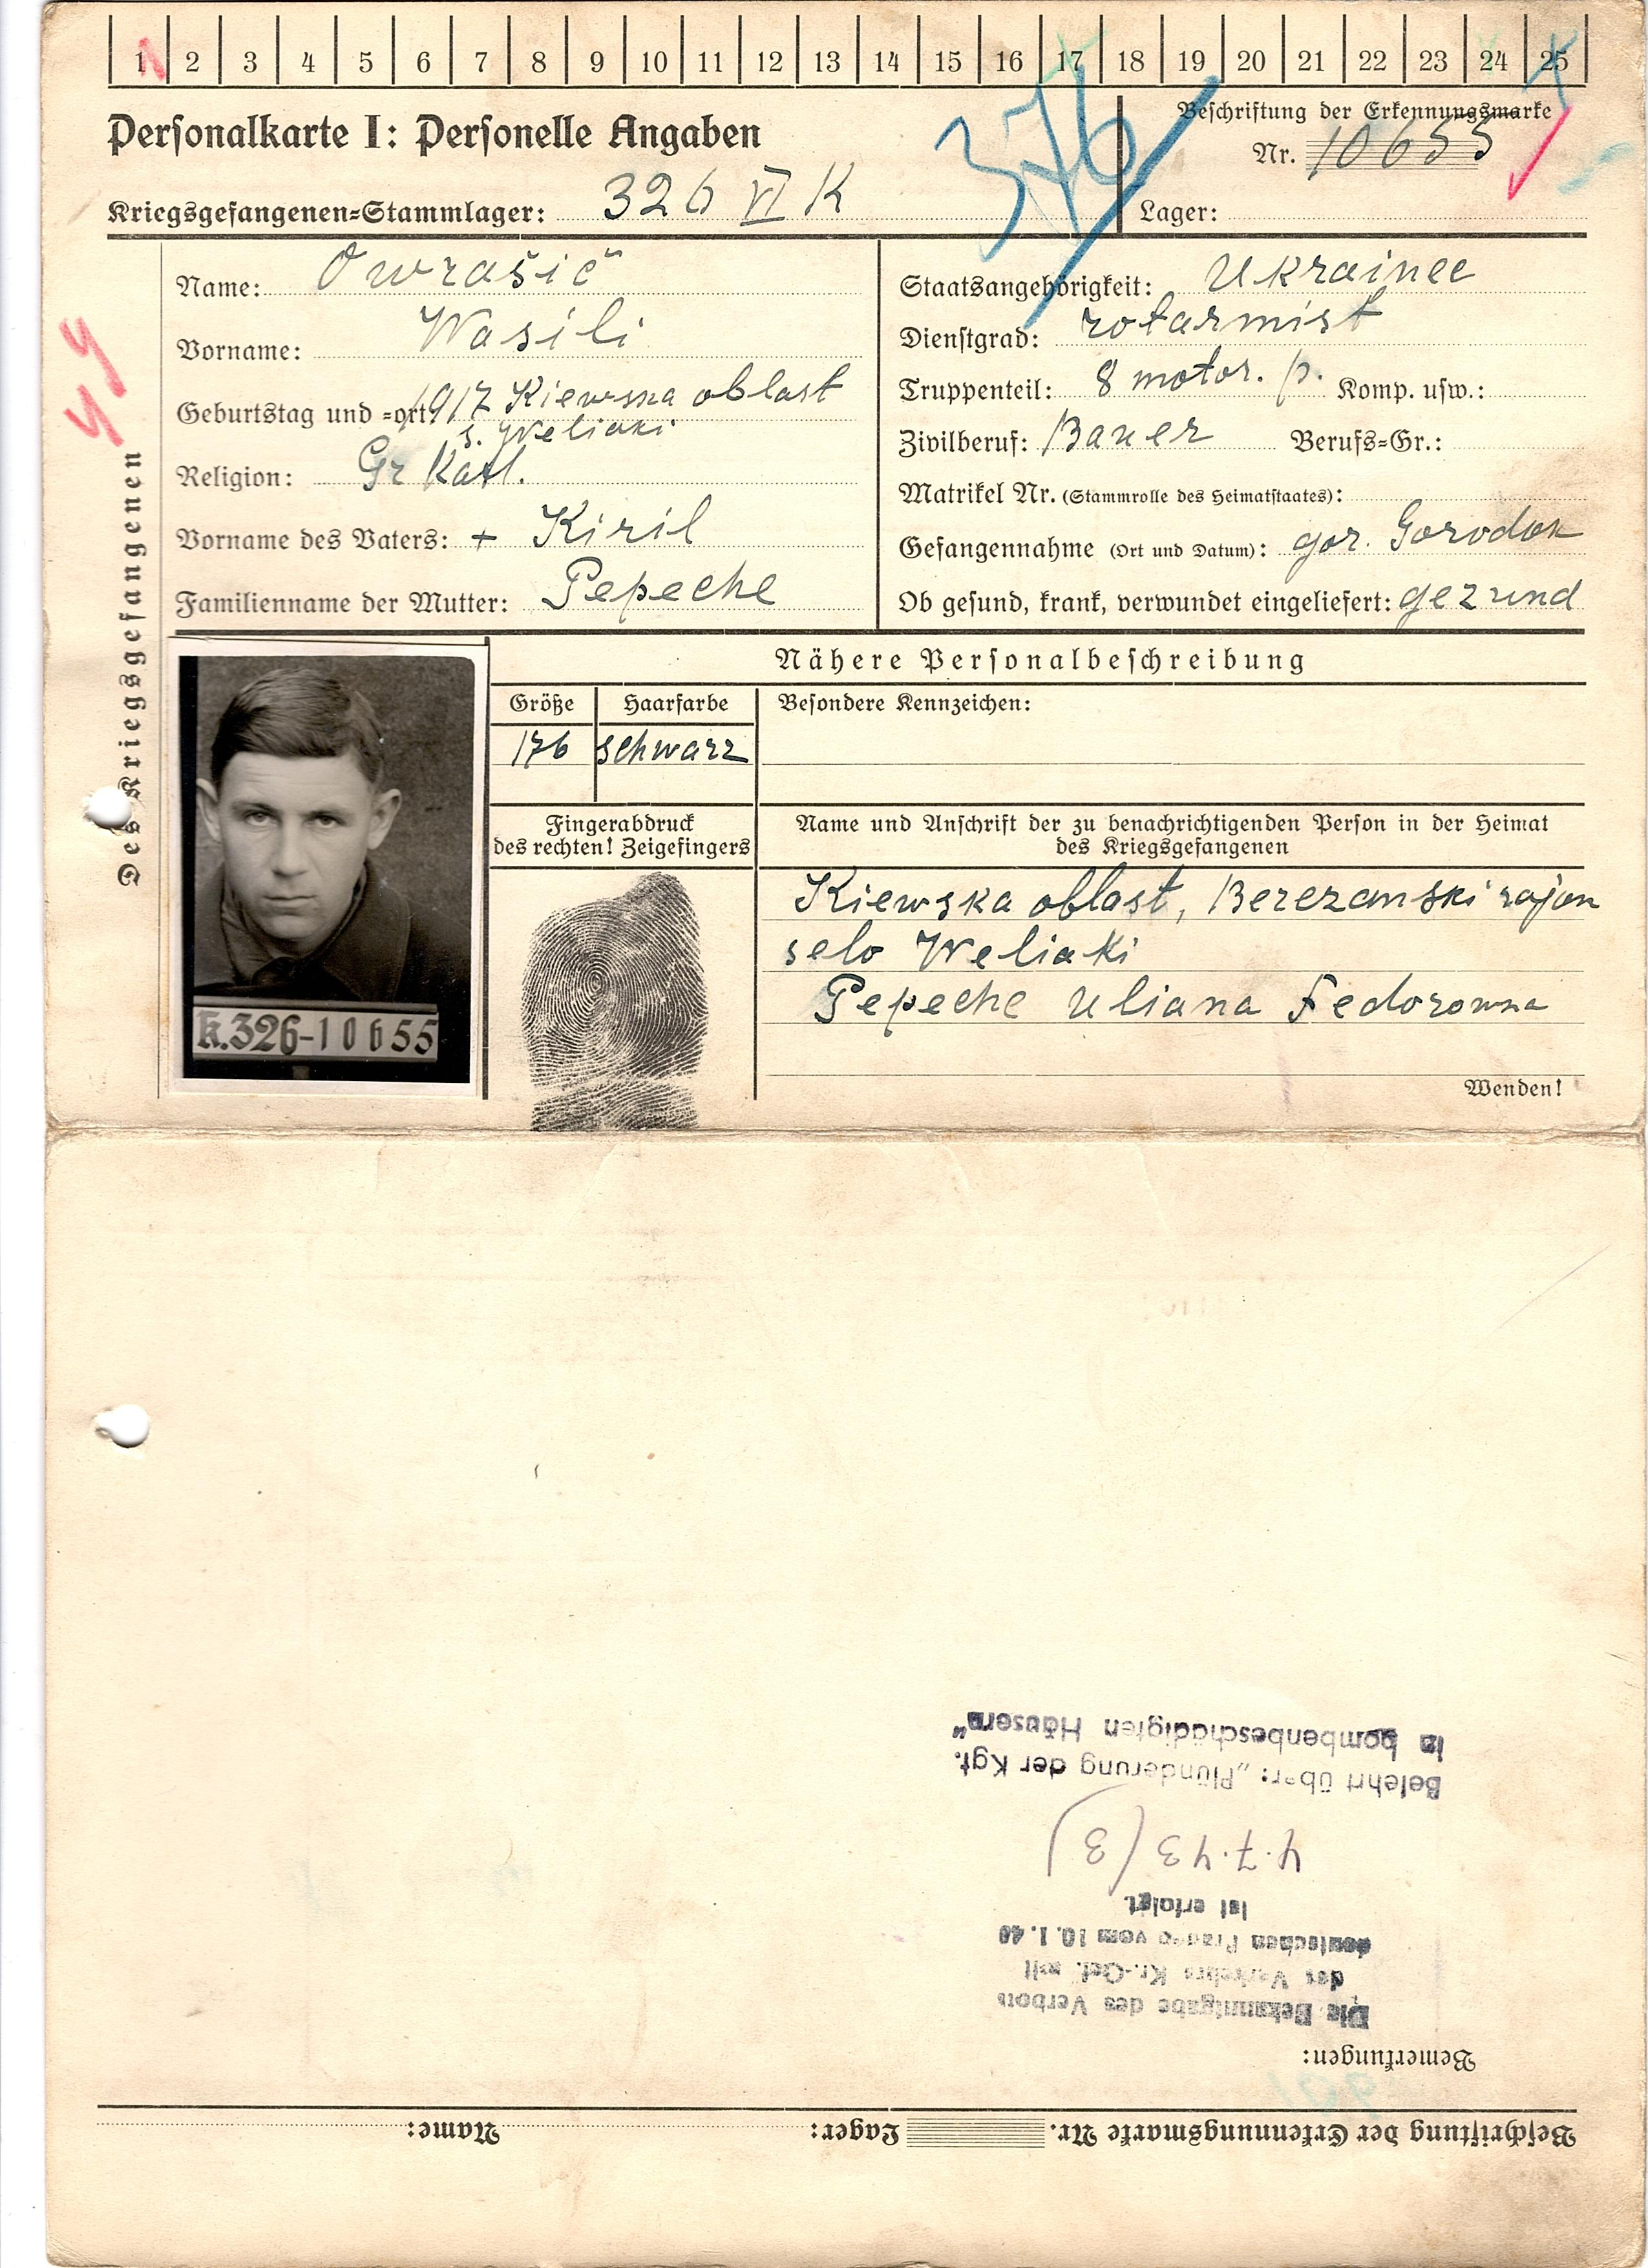 1 2 3 4 5 6 7 8 9 10 11 12 13 14 15 16 17 18 19 20 21 22 23 24 25
Personalkarte I: Personelle Angaben
376
Beschriftung der Erkennungsmarke
Nr. 10655
Kriegsgefangenen=Stammlager: 326 VI K
Lager:
Des Kriegsgefangenen
Name: Owrašič
Vorname: Wasili
Geburtstag und =ort: 1917 Kiewska oblast
s. Weliaki
Religion: Gr Katl.
Vorname des Vaters: + Kiril
Familienname der Mutter: Pepeche
Staatsangehörigkeit: Ukrainec
Dienstgrad: rotarmist
Truppenteil: 8 motor. p. Komp. usw.:
Zivilberuf: Bauer Berufs=Gr.:
Matrikel Nr. (Stammrolle des Heimatstaates):
Gefangennahme (Ort und Datum): gor. Gorodok
Ob gesund, krank, verwundet eingeliefert: gezund
K.326-10655
Nähere Personalbeschreibung
Größe Haarfarbe Besondere Kennzeichen:
176 schwarz
Fingerabdruck
des rechten! Zeigefingers
Name und Anschrift der zu benachrichtigenden Person in der Heimat
des Kriegsgefangenen
Kiewska oblast, Berezanski rajon
selo Weliaki
Pepeche Uliana Fedorowna
Wenden!
Beschriftung der Erkennungsmarke Nr. Lager: Name:
Bemerkungen:
Die Bekanntgabe des Verbots
des Verkehrs Kr.-Gef. mit
deutschen Frauen vom 10.1.40
ist erfolgt.
4.7.43 (3)
Belehrt über: „Plünderung der Kgf.
in bombenbeschädigten Häusern“